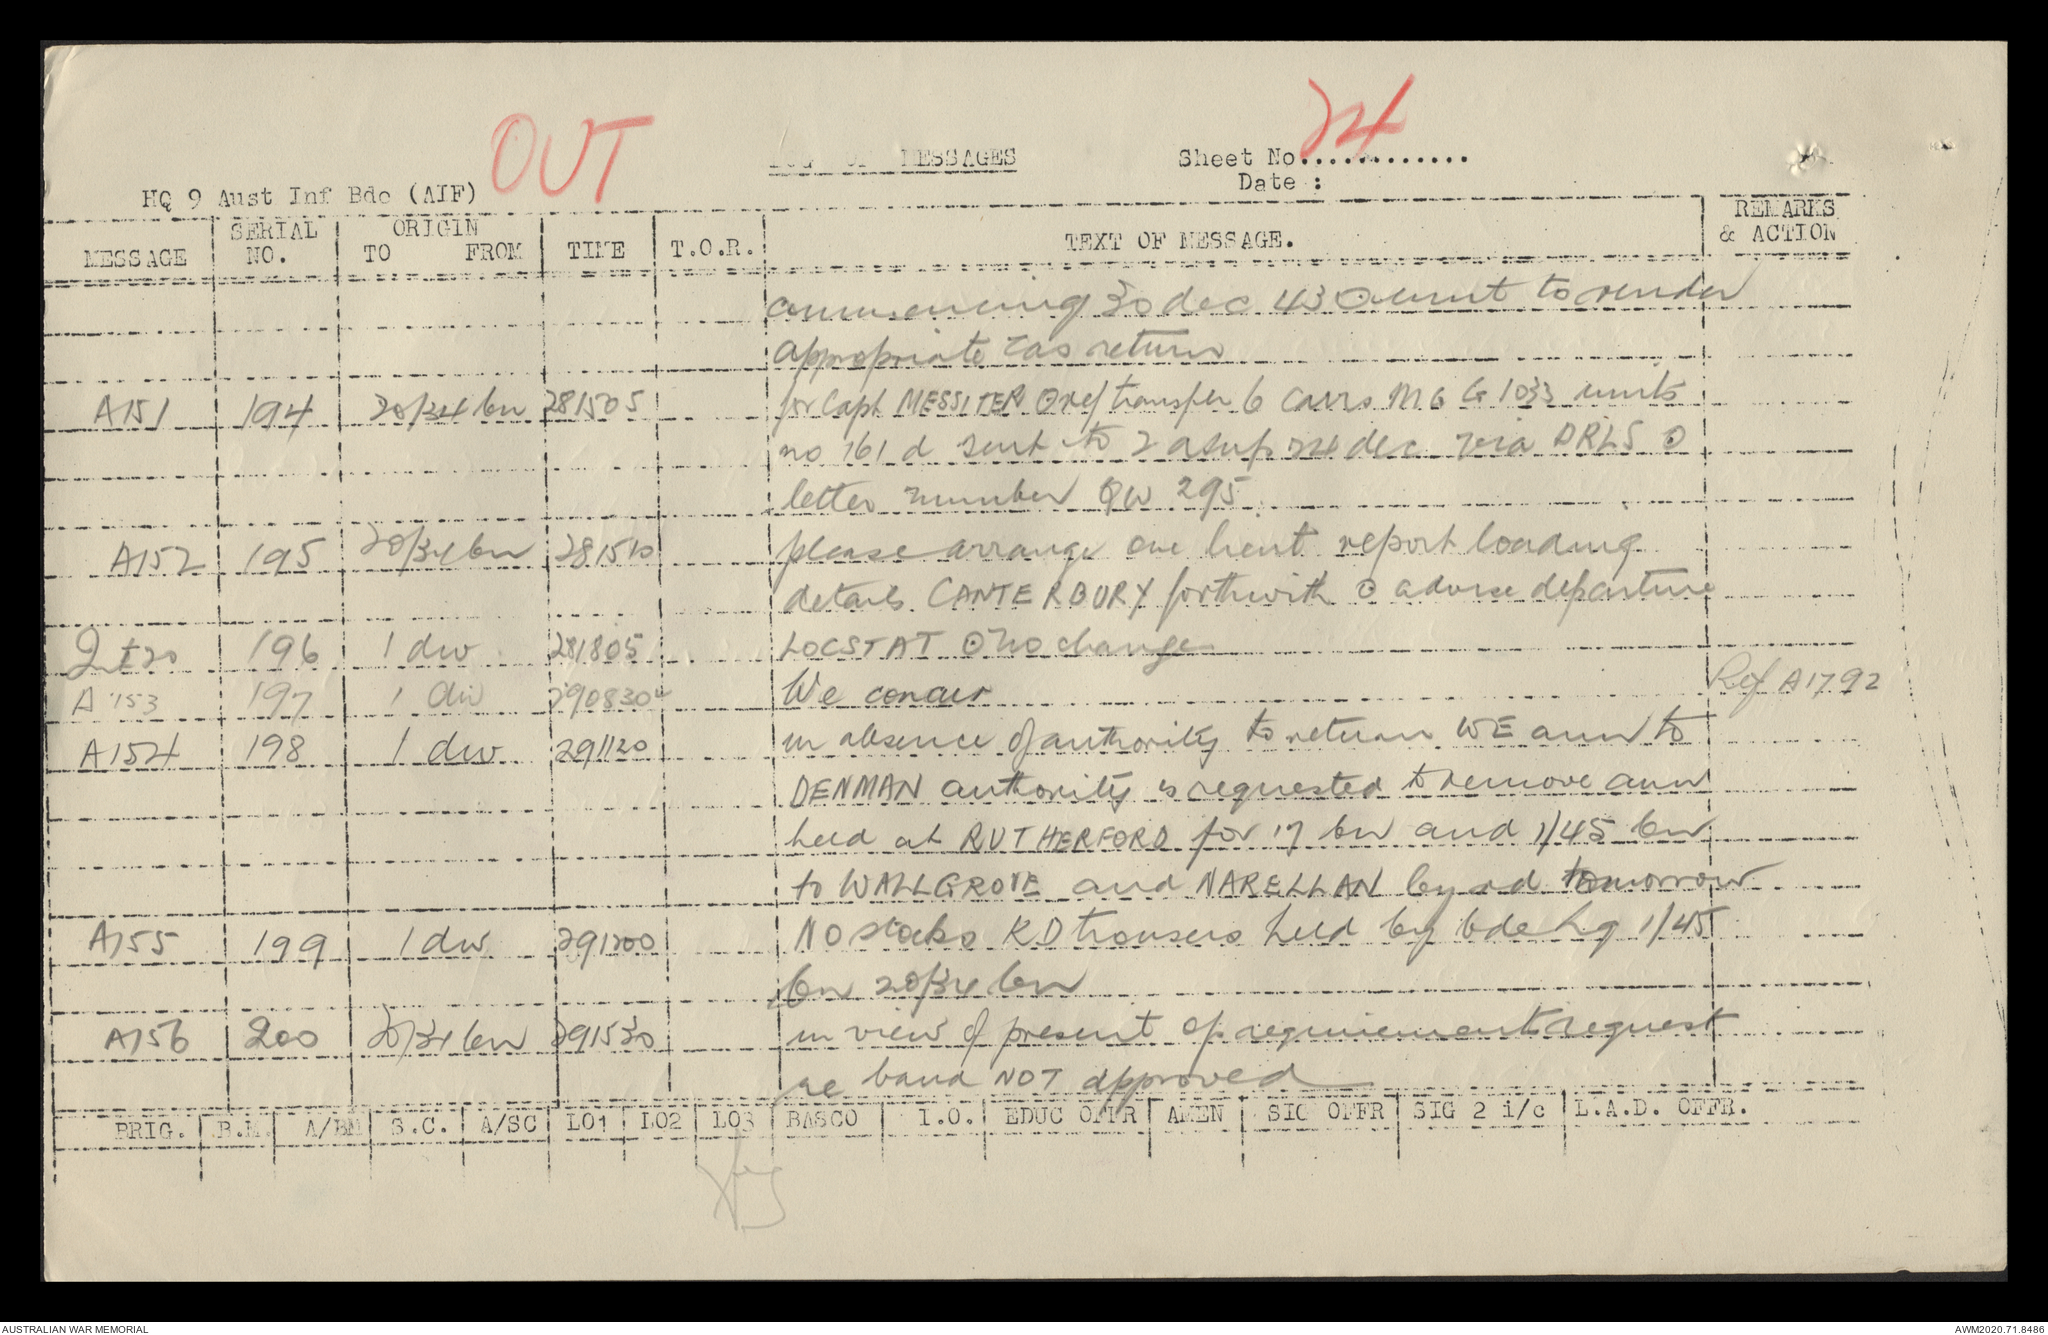 OUT
LOG OF MESSAGES
Sheet No............ 24
Date :
HQ 9 Aust Inf Bde (AIF)
MESSAGE SERIAL NO. ORIGIN TO FROM TIME T.O.R. TEXT OF MESSAGE. REMARKS & ACTION
commencing 30 dec 43 O unit to render
appropriate cas return
A151 194 20/34 bn 281505 for Capt MESSITER O ref transfer 6 carrs MG G1033 units
no 161 d sent to 2 asup 24 dec via DRLS O
letter number QW 295
A152 195 20/34 bn 281510 please arrange one lieut report loading
details CANTERBURY forthwith O advise departure
Int 20 196 1 div 281805 LOCSTAT O no change
A153 197 1 div 290830 We concur Ref A1792
A154 198 1 div 291120 in absence of authority to return WE amn to
DENMAN authority is requested to remove amn
held at RUTHERFORD for 17 bn and 1/45 bn
to WALLGROVE and NARELLAN by rd tomorrow
A155 199 1 div 291200 NO stocks KD trousers held by bde hq 1/45
bn 20/34 bn
A156 200 20/34 bn 291530 in view of present op requirements request
re band NOT approved
BRIG. B.M. A/BM S.C. A/SC LO1 LO2 LO3 BASCO I.O. EDUC OFFR AMEN SIG OFFR SIG 2 i/c L.A.D. OFFR.
AUSTRALIAN WAR MEMORIAL
AWM2020.71.8486